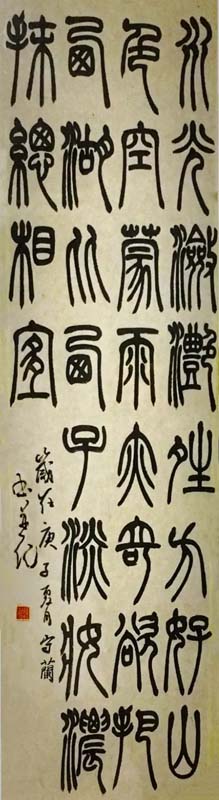 水光瀲灩晴方好山
色空蒙雨亦奇欲把
西湖比西子淡妝濃
抹總相宜
歲在庚子夏月守蘭
書